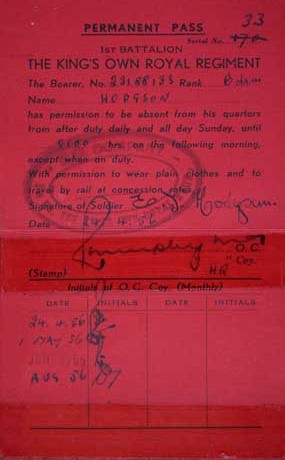 PERMANENT PASS 33
Serial No.
1ST BATTALION
THE KING'S OWN ROYAL REGIMENT
The Bearer, No. 23188133 Rank Bdsm
Name HODGSON
has permission to be absent from his quarters
from after duty daily and all day Sunday, until
hrs. on the following morning,
except when on duty.
With permission to wear plain clothes and to
travel by rail at concession rates.
Signature of Soldier Hodgson
Date 24.4.56
O.C.
(Stamp) "HQ" Coy.
Initials of O.C. Coy. (Monthly)
DATE INITIALS DATE INITIALS
24.4.56
1 MAY 56
AUG 56